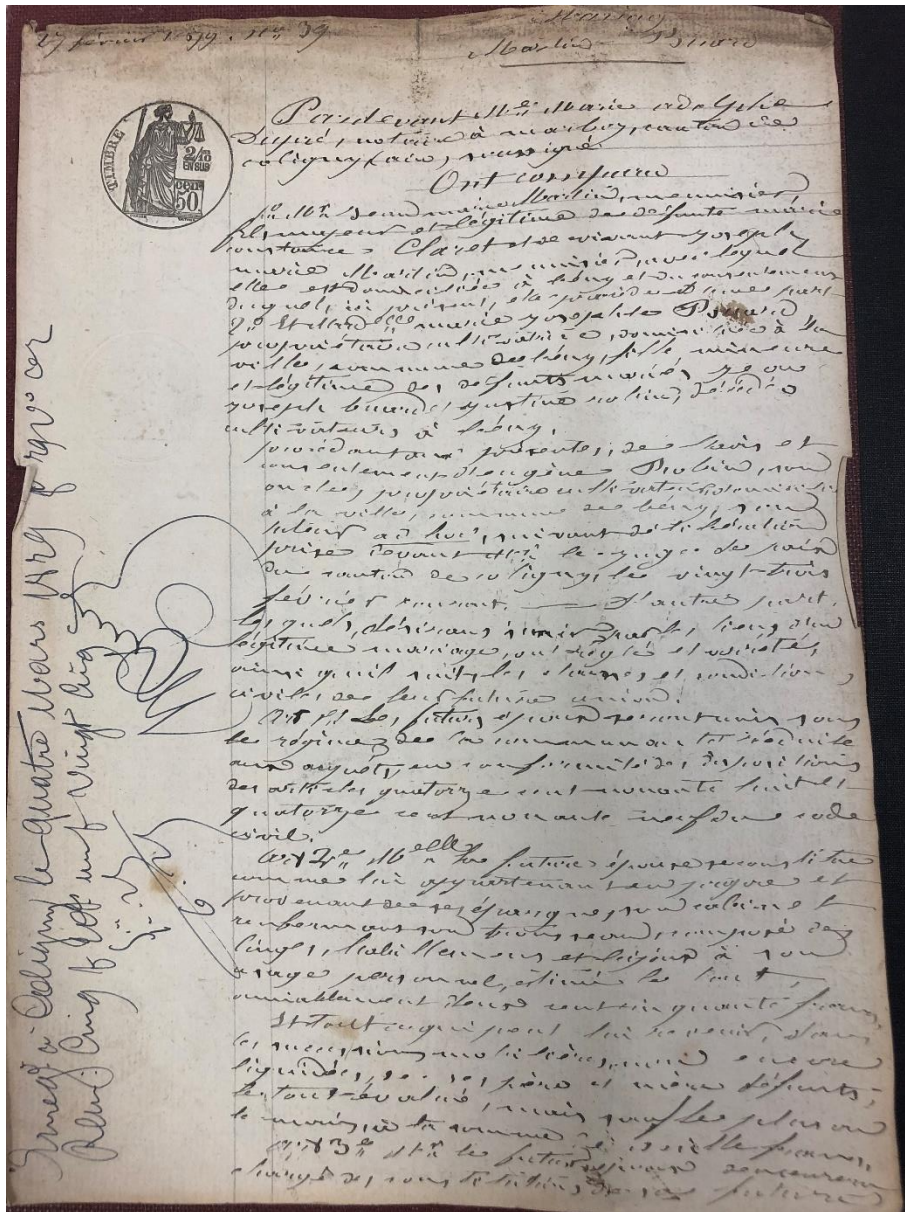 27 février 1879. No 39
Mariage
Martin Buard
TIMBRE
2/10
EN SUS
50 cen
Pardevant Me Marie Adolphe
Dupré, notaire à Marboz, canton de
Coligny (ain), soussigné
Ont comparu
1o Mr Jean Marie Martin, meunier,
fils majeur et légitime de défunte Marie
Constance Claret et de vivant Joseph
Marie Martin, meunier, avec lequel
elle est domiciliée à Bény et du consentement
duquel, ici présent, elle procède d'une part
2o Et Mademoiselle Marie Josephte Buard
propriétaire cultivatrice, domiciliée à la
ville, commune de Bény, fille mineure
et légitime des défunts mariés
Joseph Buard et Justine Robin, décédés
cultivateurs à Bény,
procédant aux présentes, de l'avis et
consentement d'Eugène Robin, son
oncle, propriétaire cultivateur, domicilié
à la ville, commune de Bény, son
tuteur ad hoc, suivant délibération
prise devant Mr le juge de paix
du canton de Coligny, le vingt-trois
février courant. — D'autre part.
Lesquels, désirant s'unir par les liens d'un
légitime mariage, ont réglé et arrêté,
ainsi qu'il suit, les clauses et conditions
civiles de leur future union.
Art 1er Les futurs époux seront unis sous
le régime de la communauté réduite
aux acquêts, en conformité des dispositions
des articles quatorze cent nonante huit et
quatorze cent nonante neuf du code
civil.
Art 2e Melle la future épouse se constitue
comme lui appartenant en propre et
provenant de ses épargnes, son
renfermant son trousseau, composé de
linges, habillements et bijoux à son
usage personnel, estimé le tout,
amiablement deux cent cinquante francs,
Et tout ce qui peut lui revenir, dans
les successions mobilières, non encore
liquidées, de ses père et mère défunts,
le tout évalué, mais sauf le plus ou
le moins, à la somme de mille francs.
Art 3e Mr le futur époux demeurera
chargé des constitutions de sa future
Enreg. à Coligny le quatre Mars 1879 fo
Reçu Cinq fr et un f vingt cinq